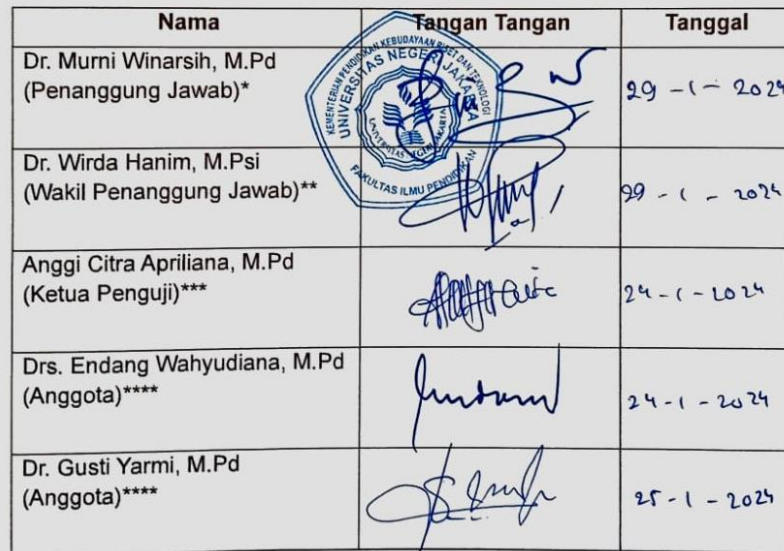 Nama Tangan Tangan Tanggal
Dr. Murni Winarsih, M.Pd
(Penanggung Jawab)* 29 - 1 - 2024
KEMENTERIAN PENDIDIKAN KEBUDAYAAN RISET DAN TEKNOLOGI
UNIVERSITAS NEGERI JAKARTA
UNIVERSITAS NEGERI JAKARTA
FAKULTAS ILMU PENDIDIKAN
Dr. Wirda Hanim, M.Psi
(Wakil Penanggung Jawab)** 29 - 1 - 2024
Anggi Citra Apriliana, M.Pd
(Ketua Penguji)*** 24 - 1 - 2024
Drs. Endang Wahyudiana, M.Pd
(Anggota)**** 24 - 1 - 2024
Dr. Gusti Yarmi, M.Pd
(Anggota)**** 25 - 1 - 2024